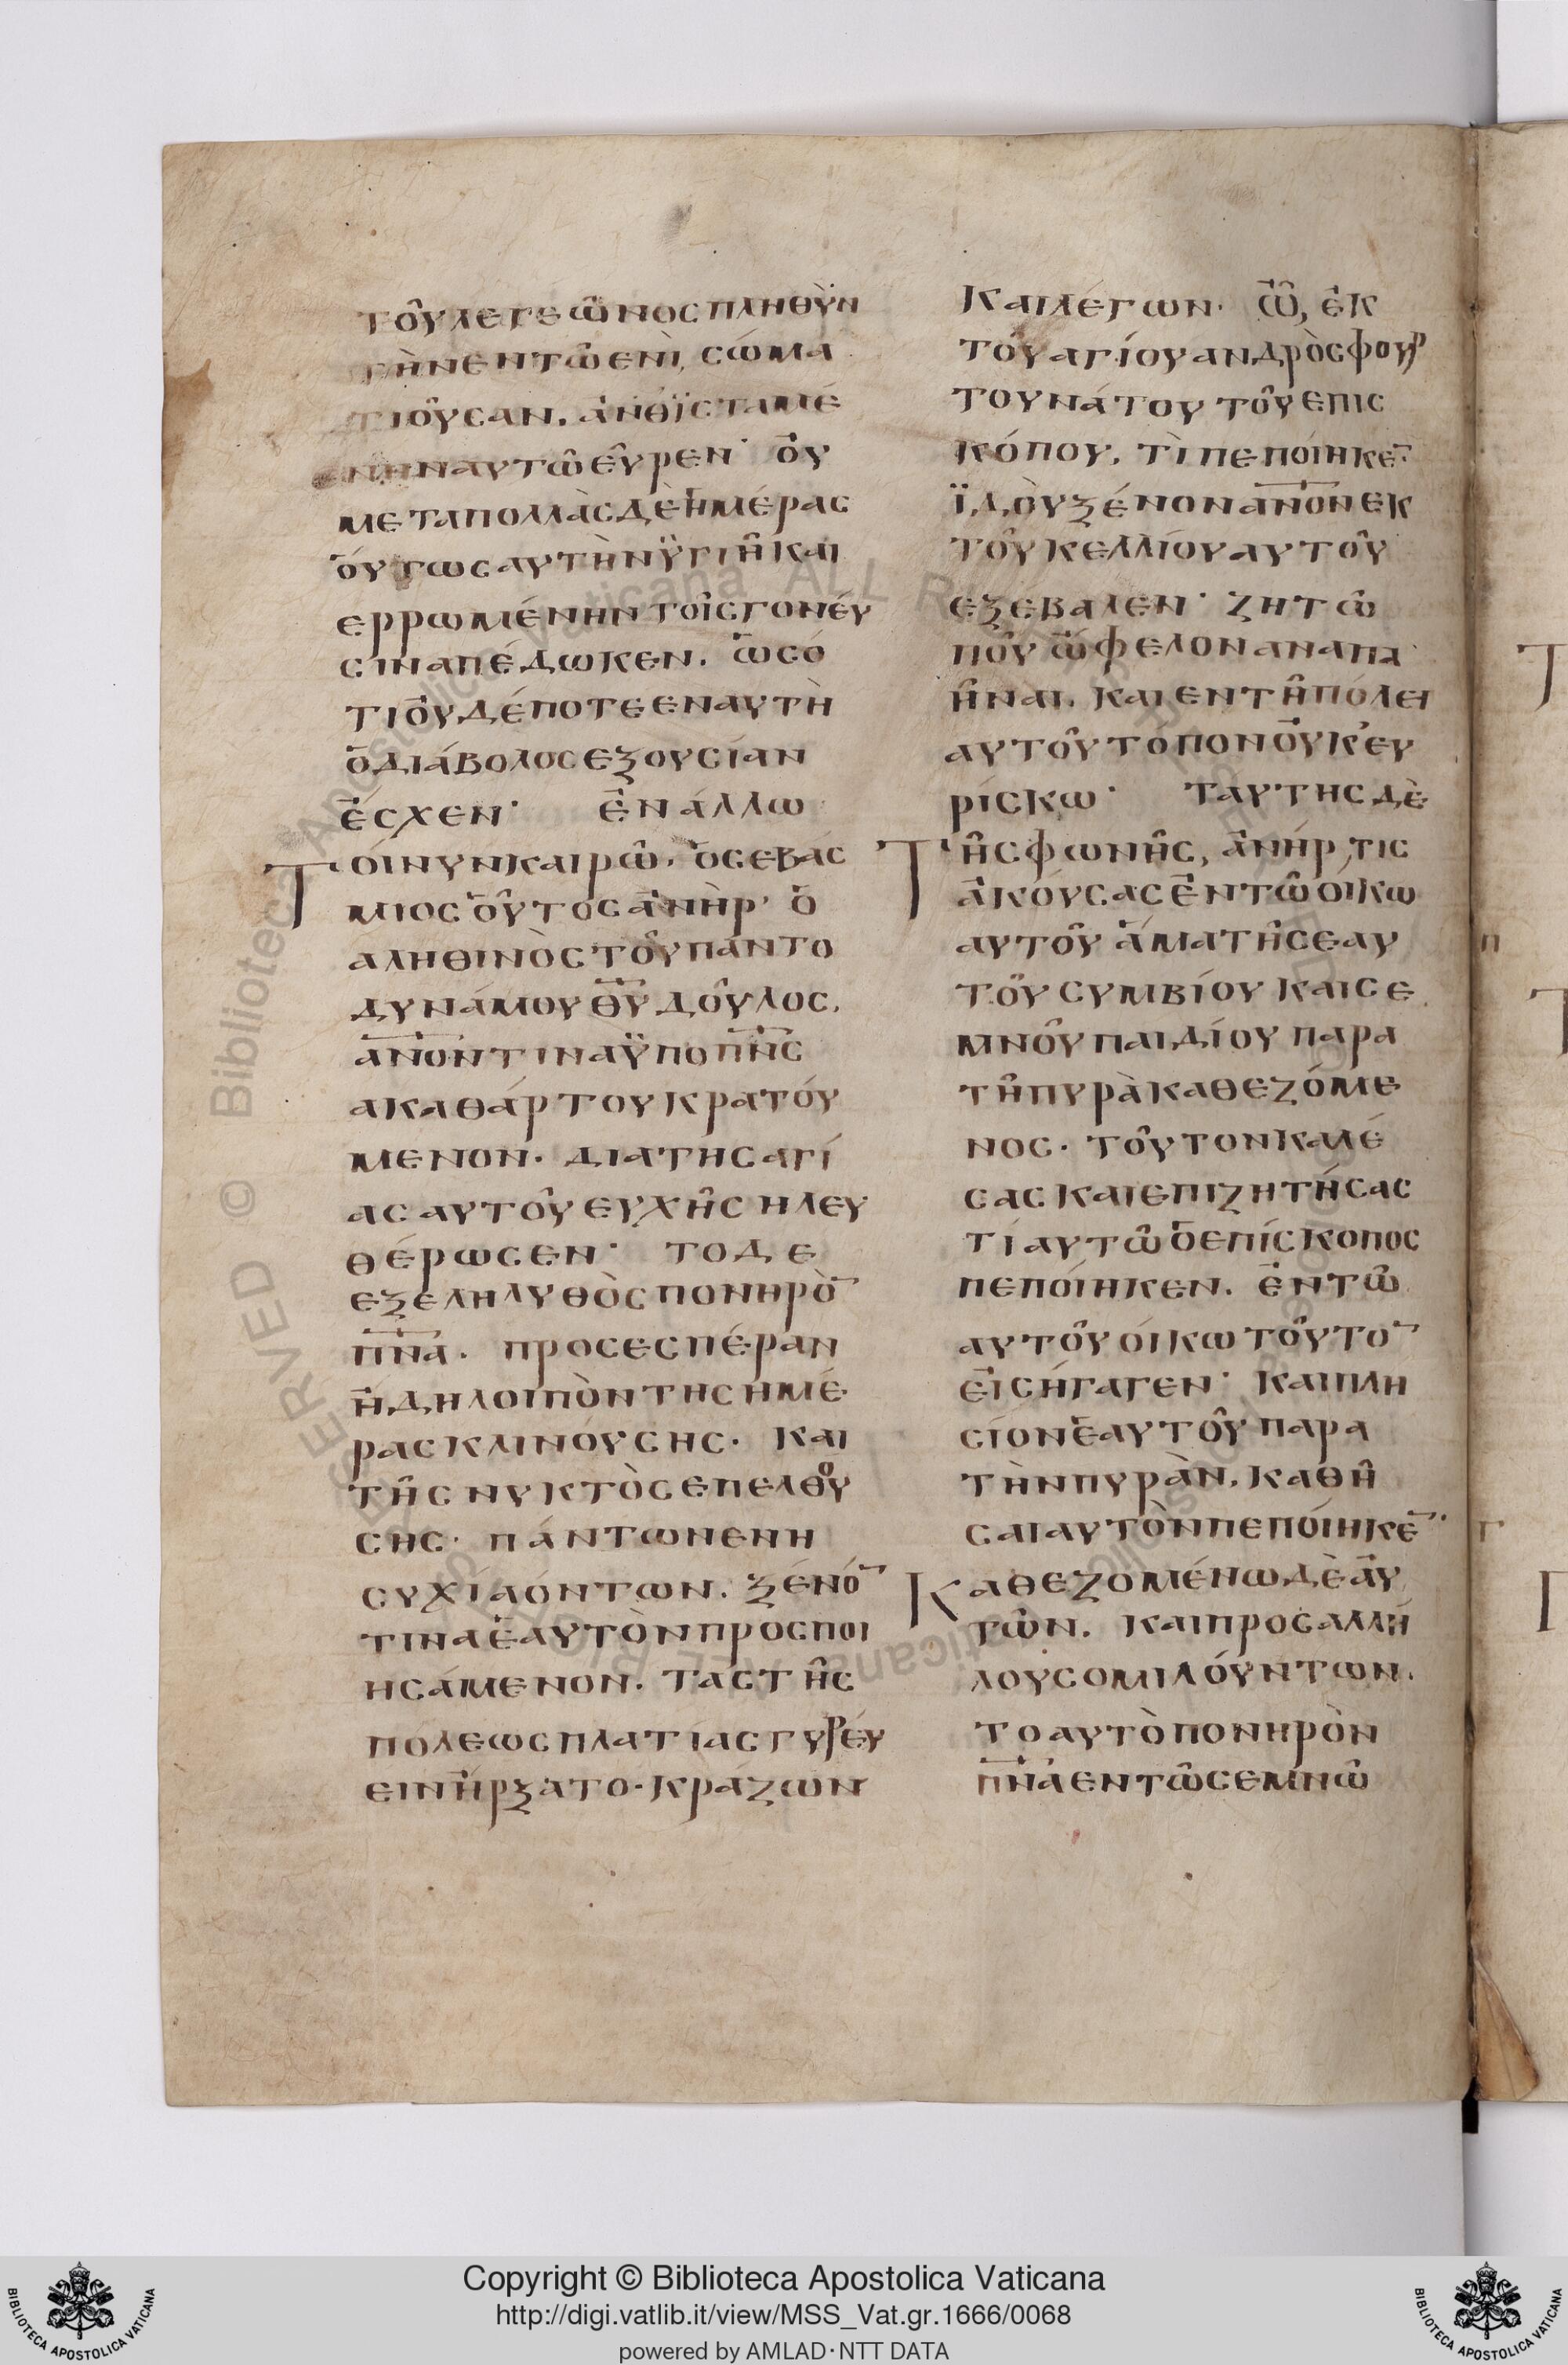 τοῦλεγεῶνοςπληθὺν
τὴνεντῶενὶ, σώμα
τιοῦσαν. ἀνθϊσταμέ
νηναυτῶεῦρεν· οὐ
μεταπολλὰςδὲἡμέρας
ὅυτωςαυτὴνϋγιῆ και
ερρωμένηντοῖςγονέυ
σιναπέδωκεν. ὡσό
τιοὐδέποτεεναυτὴ
ὁδιάβολοςεξουσίαν
ἔσχεν· ἐνάλλω
Τοίνυνκαιρῶ. ὁσεβάς
μιοςοὗτοςἀνὴρ· ὁ
αληθινὸςτοῦπαντο
δυνάμουθ̅υ̅δοῦλος.
α̅ν̅ο̅ν̅τιναϋποπ̅ν̅ς̅
ακαθάρτουκρατόυ
μενον. διατῆςαγί
αςαυτοῦευχῆςηλευ
θέρωσεν· τοδε
εξεληλυθὸςπονηρὸ̅
π̅ν̅α̅. προςεσπέραν
ἤδηλοιπὸντηςημέ
ραςκλινόυσης. και
τῆςνυκτὸςεπελθού
σης· πάντωνενη
συχίαόντων. ξένό̅
τιναἑαυτὸνπροσποι
ησάμενον. ταςτῆς
πόλεωςπλατίαςγυρέυ
εινἤρξατο·κράζων
Καιλέγων· ὦ, ἐκ
τοῦαγίουανδρὸςφουρ
τουνάτουτοῦεπις
κόπου, τὶπεπόιηκε̅·
ϊδοὺξένονα̅ν̅ο̅ν̅εκ
τοῦκελλίουαυτοῦ
εξεβαλεν· ζητῶ
ποῦὤφελοναναπα
ῆναι. καιεντῆπόλει
αυτοῦτόπονοὐκ'ευ
ρίσκω· ταυτηςδὲ
Τῆςφωνῆς, ἀνήρ,τις
ἀκόυσαςἐντῶόικω
αυτοῦἅματῆςεαυ
τοῦσυμβίουκαισε
μνοῦπαιδίουπαρα
τῆπυρὰκαθεζόμε
νος. τοῦτονκαλέ
σαςκαιεπιζητήσας
τίαυτῶὁεπίσκοπος
πεπόιηκεν. ἐντῶ
αυτοῦόικωτοῦτο̅
εἰσήγαγεν· καιπλη
σίονἑαυτοῦπαρα
τὴνπυρὰν.καθῆ
σαιαυτὸνπεπόιηκε̅·
Καθεζομένωδὲἀυ
τῶν. καιπροςαλλή
λουςομιλόυντων.
τοαυτὸπονηρὸν
π̅ν̅α̅εντῶσεμνῶ
Copyright © Biblioteca Apostolica Vaticana
http://digi.vatlib.it/view/MSS_Vat.gr.1666/0068
powered by AMLAD·NTT DATA